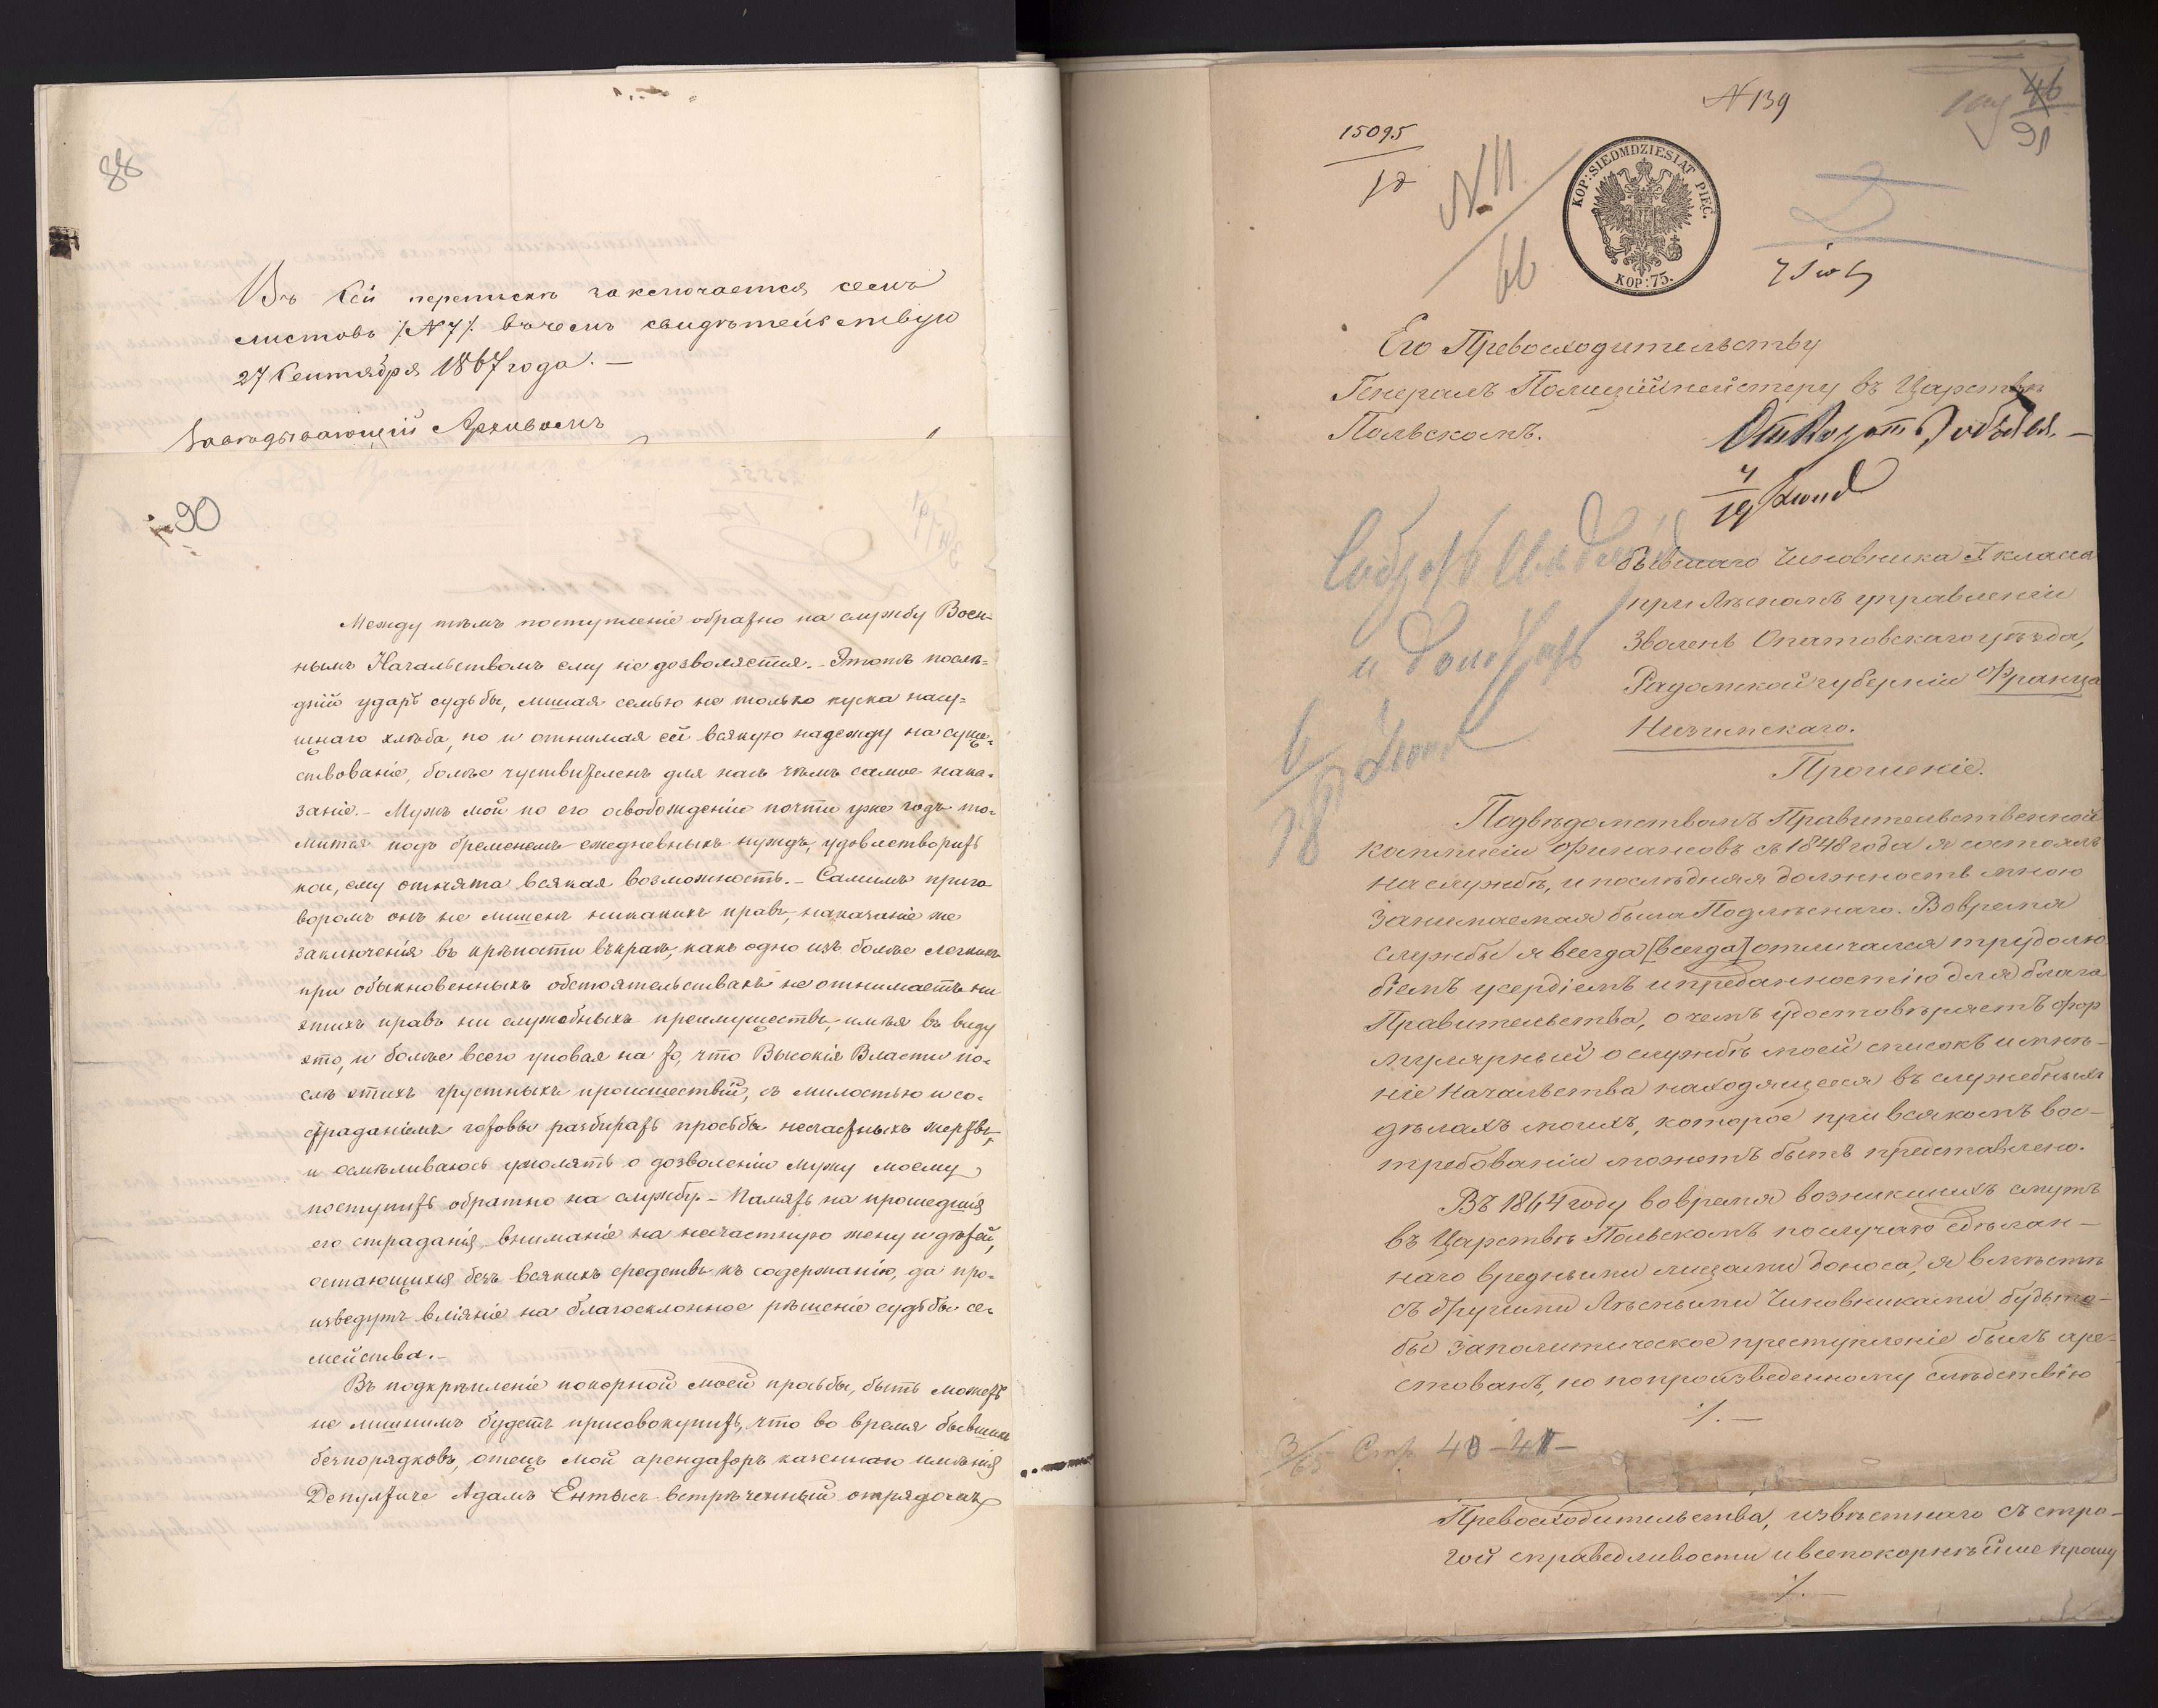 88
Въ сей перепискѣ заключается семь
листовъ /:№7/: въ чемъ свидѣтельствую
27 Сентября 1867 года. —
Завѣдывающій Архивомъ
90
Между тѣмъ поступленіе обратно на службу Воен-
нымъ Начальствомъ ему не дозволяется. - Этотъ послѣ-
дній ударъ судьбы, лишая семью не только куска насу-
щнаго хлѣба, но и отнимая ей всякую надежду на суще-
ствованіе, болѣе чуствителенъ для насъ чѣмъ самое нака-
заніе. - Мужъ мой по его освобожденіи почти уже годъ то-
мится подъ бременемъ ежедневныхъ нуждъ, удовлетворить
кои, ему отнята всякая возможность. - Самимъ приго
воромъ онъ не лишенъ никакихъ правъ, наказаніе же
заключенія въ крѣпости какъ одно изъ болѣе легкихъ
при обыкновенныхъ обстоятельствахъ не отнимаетъ ни
этихъ правъ ни служебныхъ преимуществъ, имѣя въ виду
это, и болѣе всего уповая на то, что Высокія Власти по-
слѣ этихъ грустныхъ происшествій, съ милостью и со-
страданіемъ готовы разбирать просьбы несчастныхъ жертвъ,
и осмѣливаюсь умолять о дозволеніи мужу моему
поступить обратно на службу. - Память на прошедшія
его страданія, вниманіе на несчастную жену и дѣтей,
остающихся безъ всякихъ средствъ къ содержанію, да про-
изведутъ вліяніе на благосклонное рѣшеніе судьбы се-
мейства. -
Въ подкрѣпленіе покорной моей просьбы, быть можетъ
не лишнимъ будетъ присовокупить, что во время бывшихъ
безпорядковъ, отецъ мой арендаторъ казеннаго имѣнія
Адамъ встрѣченный отрядомъ
№ 139
46
91
15095
12
N. 11
66
KOP: SIEDMDZIESIĄT PIĘĆ.
KOP: 75.
Его Превосходительству
Генералъ Полиціймейстеру въ Царствѣ
Польскомъ.
Отказать, объявл. —
4
19 Іюня
и доложить
6
18 Іюня
бывшаго Чиновника X класса
при Лѣсномъ управленіи
Званень Опатовскаго уѣзда,
Радомской губерніи Франца
Ничипскаго.
Прошеніе.
Подвѣдомствомъ Правительственной
Коммисіи Финансовъ съ 1848 года я состоялъ
на службѣ, и послѣдняя должность мною
занимаемая была Подлѣснаго. Во время
службы я всегда [всегда] отличался трудолю
біемъ усердіемъ и преданностію для блага
Правительства, о чемъ удостовѣряетъ фор
мулярный о службѣ моей списокъ и мнѣ-
ніе Начальства находящееся въ служебныхъ
дѣлахъ моихъ, которое при всякомъ вос-
требованіи можетъ быть представлено.
Въ 1864 году во время возникшихъ смутъ
въ Царствѣ Польскомъ по случаю сдѣлан-
наго вредными лицами доноса, я вмѣстѣ
съ другими Лѣсными Чиновниками будьто-
бы за политическое преступленіе былъ аре-
стованъ, но по произведенному слѣдствію
/. —
3/65 Стр. 40-41-
Превосходительства, извѣстнаго съ стро-
гой справедливости и всепокорнѣйше прошу
/. —